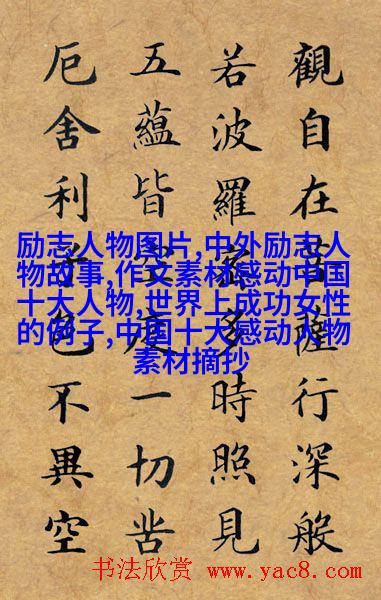 觀自在菩薩行深般
若波羅蜜多時照見
五蘊皆空度一切苦
厄舍利子色不異空
励志人物图片,中外励志人
物故事,作文素材感动中国
十大人物,世界上成功女性
的例子,中国十大感动人物
素材摘抄
书法欣赏 www.yac8.com